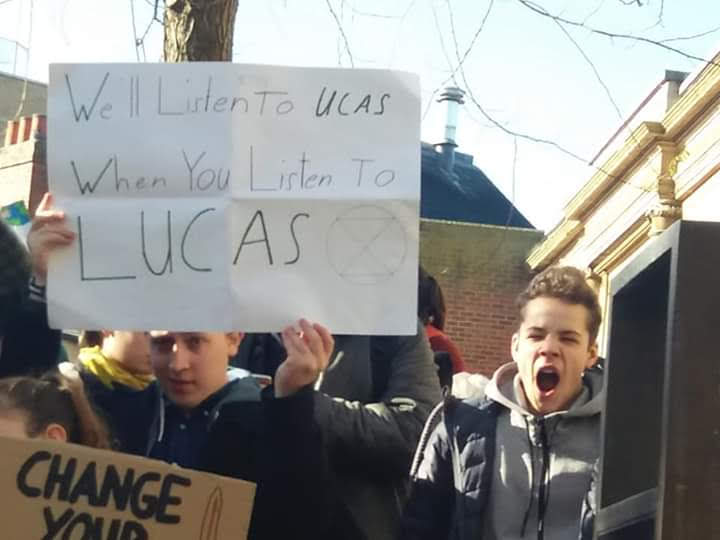 We'll Listen To UCAS
When You Listen To
LUCAS
CHANGE
YOUR